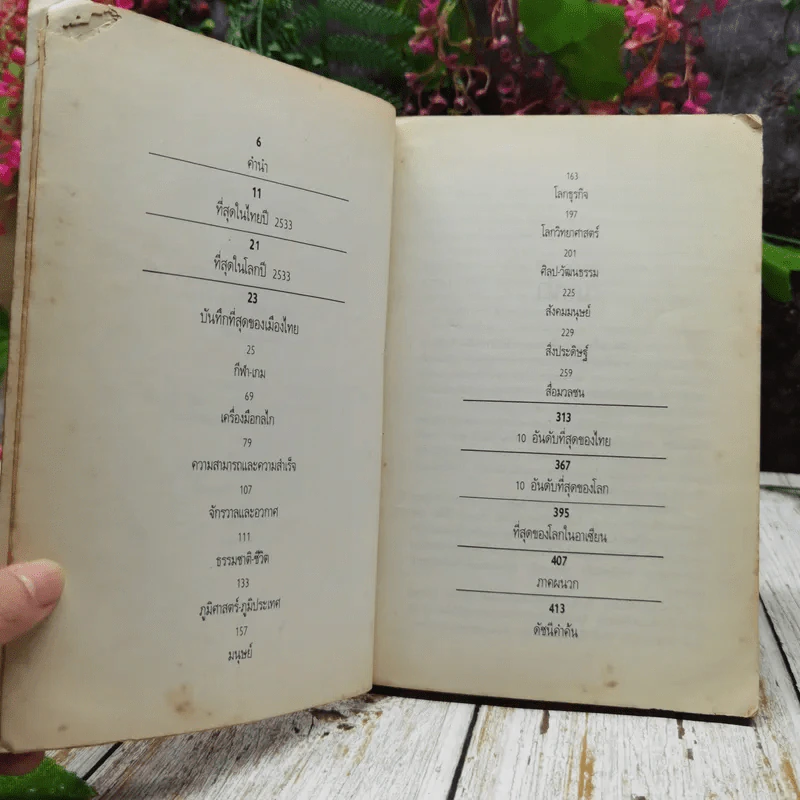 6
คำนำ
11
ที่สุดในไทยปี 2533
21
ที่สุดในโลกปี 2533
23
บันทึกที่สุดของเมืองไทย
25
กีฬา-เกม
69
เครื่องมือกลไก
79
ความสามารถและความสำเร็จ
107
จักรวาลและอวกาศ
111
ธรรมชาติ-ชีวิต
133
ภูมิศาสตร์-ภูมิประเทศ
157
มนุษย์
163
โลกธุรกิจ
197
โลกวิทยาศาสตร์
201
ศิลป-วัฒนธรรม
225
สังคมมนุษย์
229
สิ่งประดิษฐ์
259
สื่อมวลชน
313
10 อันดับที่สุดของไทย
367
10 อันดับที่สุดของโลก
395
ที่สุดของโลกในอาเซียน
407
ภาคผนวก
413
ดัชนีคำค้น